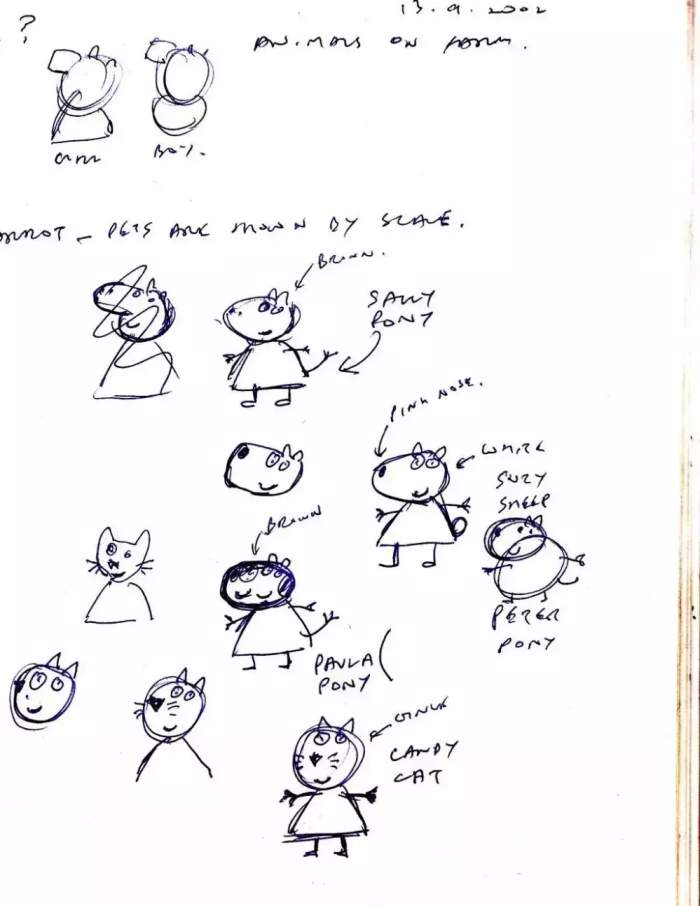 13.9.2002
?
ANIMALS ON FARM.
GIRL BOY.
PETS ARE BY SCALE.
BROWN.
SALLY
PONY
PINK NOSE.
WHITE
SUZY
SHEEP
BROWN
PETER
PONY
PAULA
PONY
CANDY
CAT